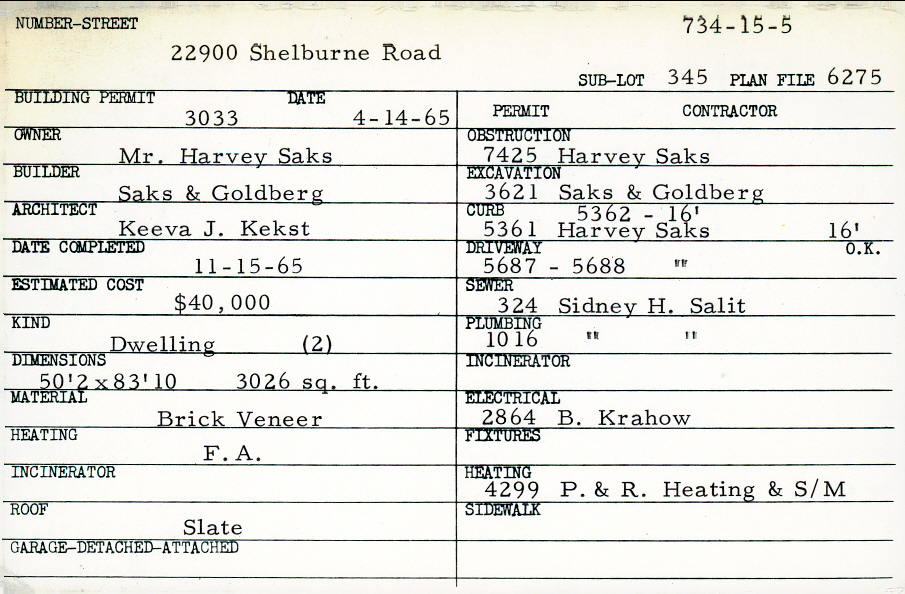 NUMBER-STREET 734-15-5
22900 Shelburne Road
SUB-LOT 345 PLAN FILE 6275
BUILDING PERMIT DATE
3033 4-14-65
OWNER
Mr. Harvey Saks
BUILDER
Saks & Goldberg
ARCHITECT
Keeva J. Kekst
DATE COMPLETED
11-15-65
ESTIMATED COST
$40,000
KIND
Dwelling (2)
DIMENSIONS
50'2x83'10 3026 sq. ft.
MATERIAL
Brick Veneer
HEATING
F.A.
INCINERATOR
ROOF
Slate
GARAGE-DETACHED-ATTACHED
PERMIT CONTRACTOR
OBSTRUCTION
7425 Harvey Saks
EXCAVATION
3621 Saks & Goldberg
CURB 5362 - 16'
5361 Harvey Saks 16'
DRIVEWAY O.K.
5687 - 5688 "
SEWER
324 Sidney H. Salit
PLUMBING
1016 " "
INCINERATOR
ELECTRICAL
2864 B. Krahow
FIXTURES
HEATING
4299 P. & R. Heating & S/M
SIDEWALK